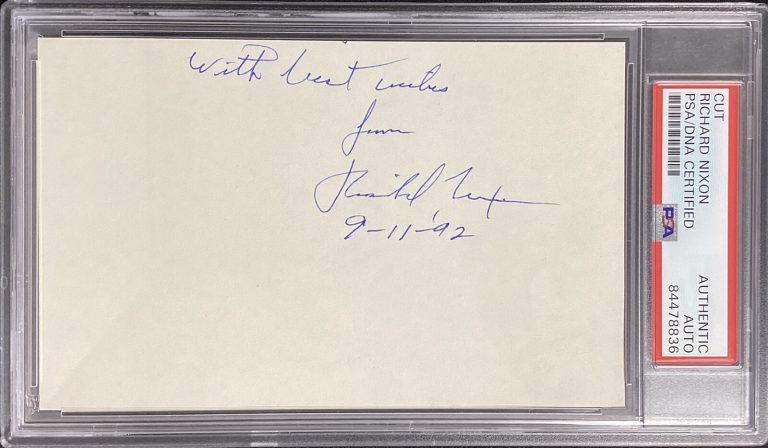 with best wishes
from
Richard Nixon
9-11-92
CUT
RICHARD NIXON
PSA/DNA CERTIFIED
PSA
AUTHENTIC
AUTO
84478836